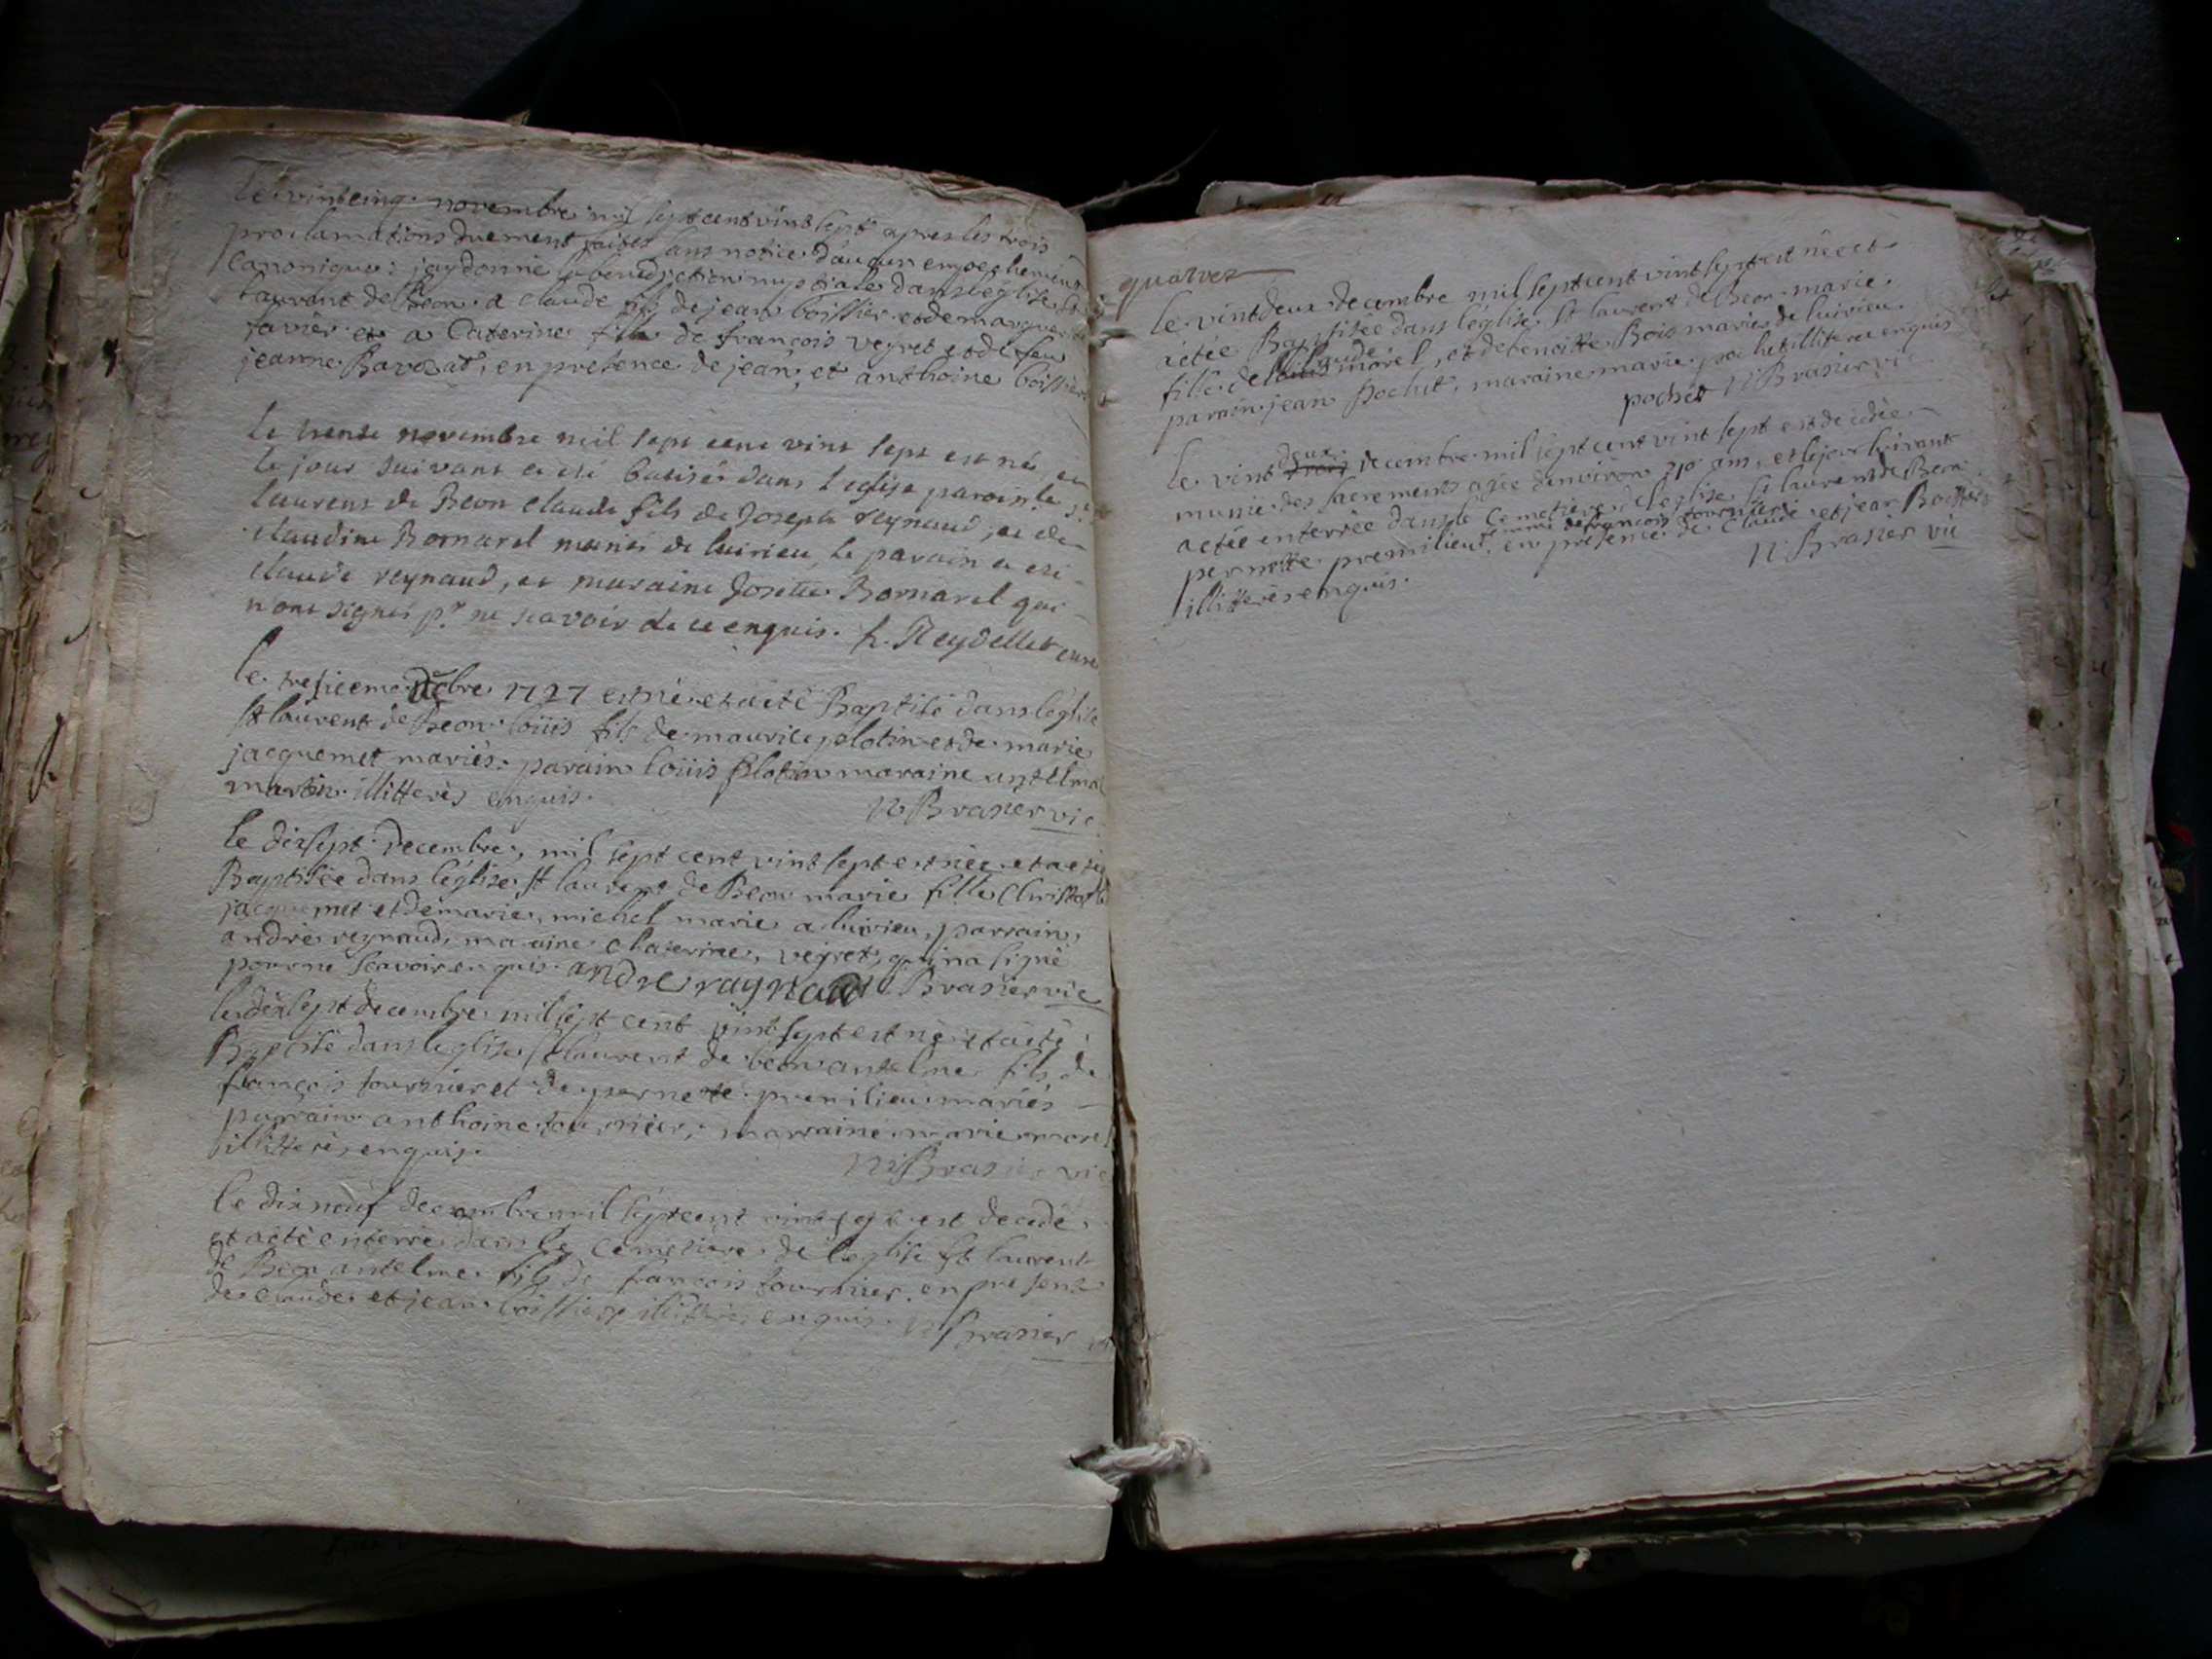 Le vintcinq novembre mil sept cent vint sept apres les trois
proclamations duement faites sans notice d'aucun empechement
canonique: jay donné la benediction nuptiale dans l'église St
laurent de Beon a claude fils de jean boissier et de marguerite
favier et a Caterine fille de françois veyret et de feu
jeanne Bavozat, en presence de jean, et anthoine boissier
Le trente novembre mil sept cent vint sept est né et
le jour suivant a eté batisé dans l'eglise paroissle St
laurens de Beon claude fils de Joseph Reynaud, et de
claudine Bornarel mariés de luirieu, le parain a eté
claude reynaud, et maraine Josette Bornarel qui
n'ont signés pr ne scavoir de ce enquis. h. Reydellet curé
le tresiemе Xbre 1727 est né et a eté Baptisé dans léglise
St laurent de Beon loüis fils de maurice plotin et de marie
jacquemet mariés. parain loüis plotin maraine antelma
martin illitterés enquis.
N Brasier vic
le dixsept decembre, mil sept cent vint sept est née et a eté
Baptisée dans léglise St laurent de Beon marie fille Christofle
jacquemet et de marie, michel mariés a luirieu, parrain,
andrié reynaud, maraine, chaterine, veyret, qui na signé
pour ne scavoir enquis. andre raynaud N Brasier vic
le dixsept decembre mil sept cent vint sept est né et a eté
Baptisé dans leglise St laurent de beon antelme fils de
françois fournier et de pernete premilieu mariés
parrain anthoine fournier, marraine marie morel
illitterés enquis.
N Brasier vic
le dixneuf decembre mil sept cent vint sept est decedé
et a eté enterré dans le cemetiere de leglise St laurent
de Beon antelme fils de françois fournier en presence
de claude et jean boissier illitterés enquis. N Brasier vic
quatre
le vint deux decembre mil sept cent vint sept est née et
a etée Baptisée dans léglise St laurent de Beon marie
claude
fille de louis morel, et de benoitte Bois mariés de luirieu.
parain jean pochet, maraine marie pochet illitterée enquis
pochet N Brasier vic
deux
le vint trois decembre mil sept cent vint sept est decedée
munie des sacrements agée denviron 30 ans, et le jour suivant
a etée enterrée dans le cemetiere de leglise St laurent de Beon
femme de françois fournier
pernette premilieu, en presence de claude et jean Boissier
illitterés enquis.
N Brasier vic